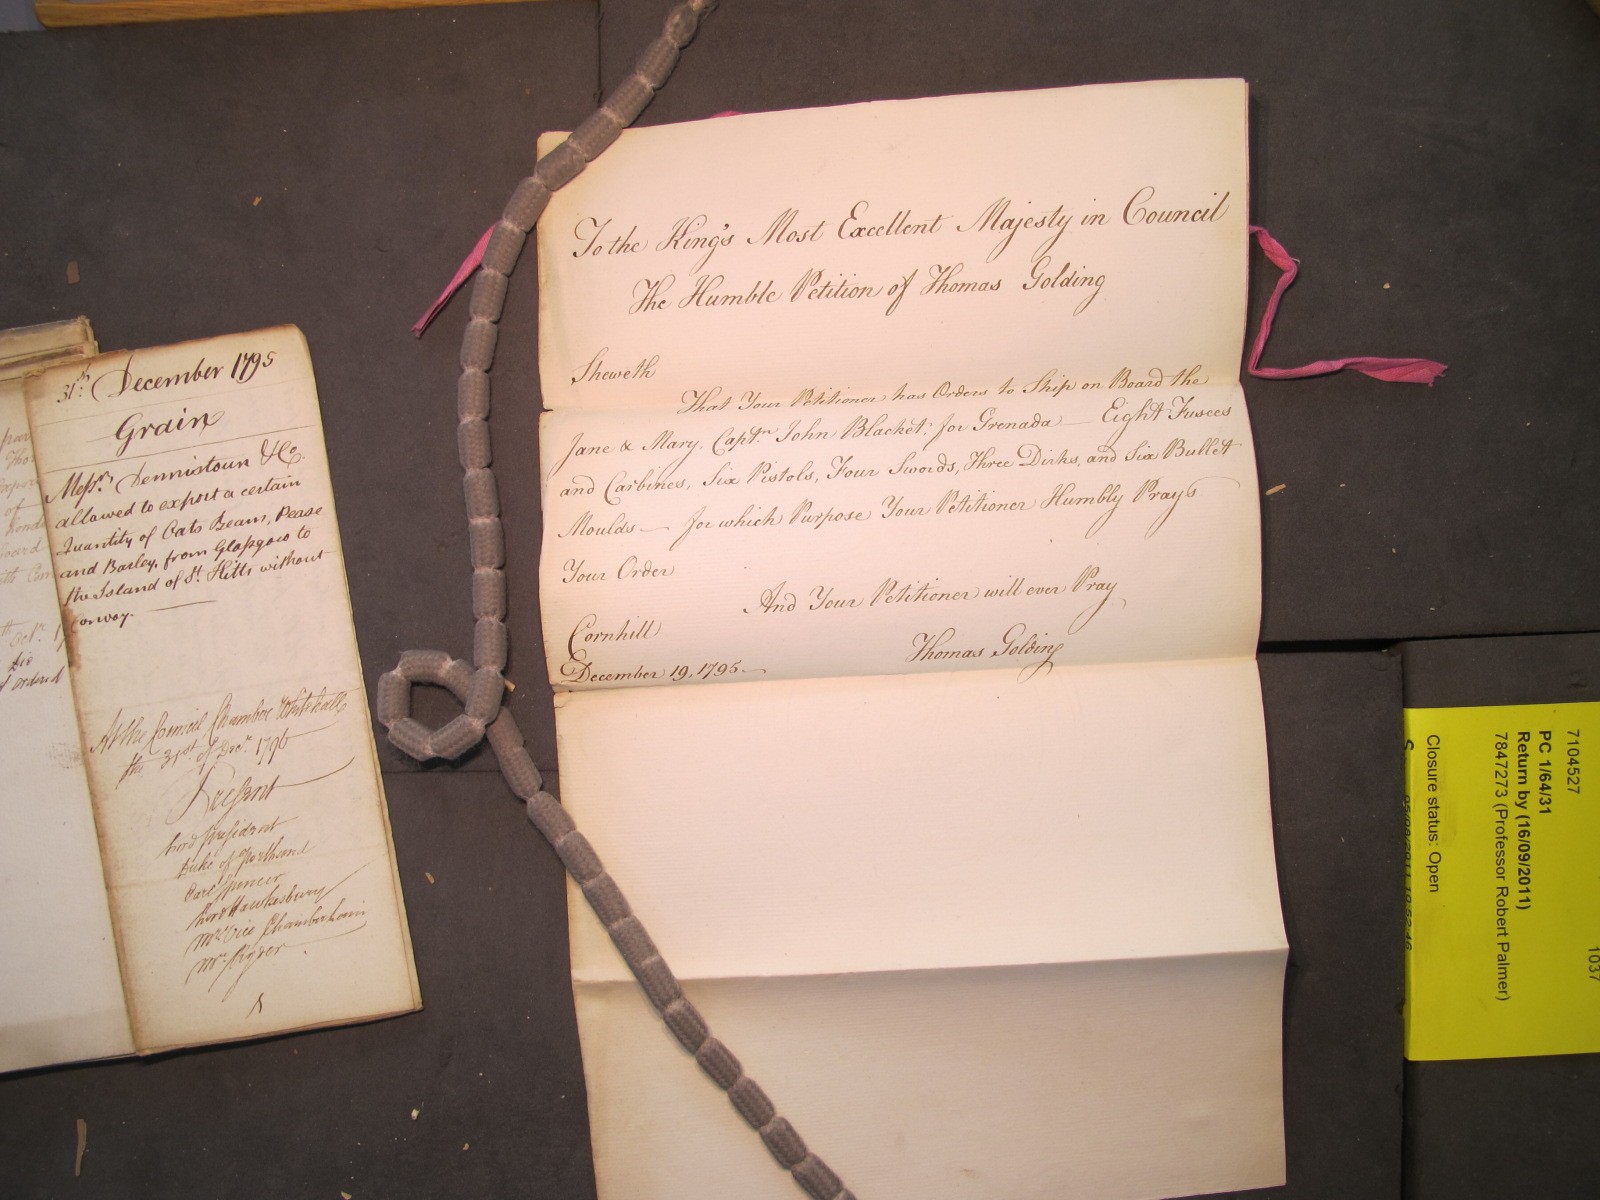 31st. December 1795
Grain
Messrs. Dennistoun & Co.
allowed to export a certain
Quantity of Oats Beans, Pease
and Barley, from Glasgow to
the Island of St. Kitts without
Convoy.
At the Council Chamber Whitehall
the 31st of Decr. 1795
Present
Lord President
Duke of Portland
Earl Spencer
Lord Hawkesbury
Mr. Vice Chamberlain
Mr. Ryder
To the King's Most Excellent Majesty in Council
The Humble Petition of Thomas Golding
Sheweth
That Your Petitioner has Orders to Ship on Board the
Jane & Mary, Captn. John Blacket, for Grenada — Eight Fusees
and Carbines, Six Pistols, Four Swords, Three Dirks, and Six Bullet
Moulds — for which Purpose Your Petitioner Humbly Prays
Your Order
And Your Petitioner will ever Pray
Cornhill
Thomas Golding
December 19, 1795.
7104527
PC 1/64/31
Return by (16/09/2011)
7847273 (Professor Robert Palmer)
Closure status: Open
1037